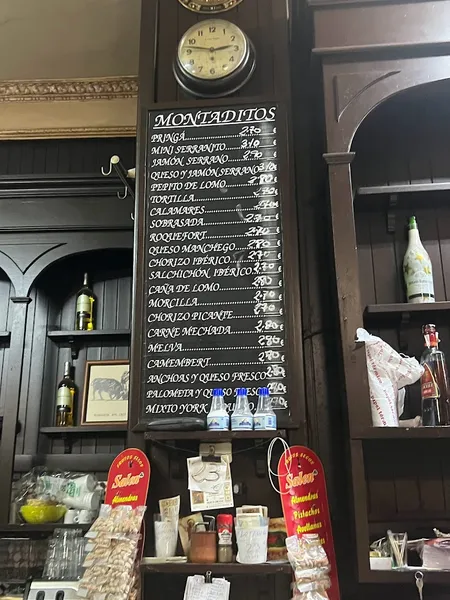 MONTADITOS
PRINGÁ.............2'70
MINI SERRANITO........3'10 €
JAMÓN SERRANO........2'70 €
QUESO Y JAMÓN SERRANO 3'10 €
PEPITO DE LOMO........2'80 €
TORTILLA............2'70 €
CALAMARES...........2'70 €
SOBRASADA...........2'70 €
ROQUEFORT..........2'70 €
QUESO MANCHEGO......2'80 €
CHORIZO IBÉRICO......2'70 €
SALCHICHÓN IBÉRICO..2'70 €
CAÑA DE LOMO........2'80 €
MORCILLA............2'70 €
CHORIZO PICANTE......2'70 €
CARNE MECHADA.......2'80 €
MELVA...............2'80 €
CAMEMBERT...........2'70 €
ANCHOAS Y QUESO FRESCO €
PALOMETA Y QUESO FRESCO €
MIXTO YORK €
FRUTOS SECOS
Salen
Almendras
FRUTOS SECOS
Salen
Almendras
Pistachos
Avellanas